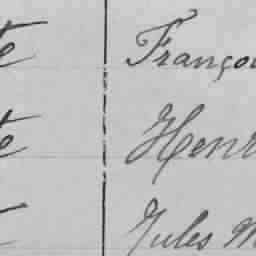 te Franço
te Henr
Jules M